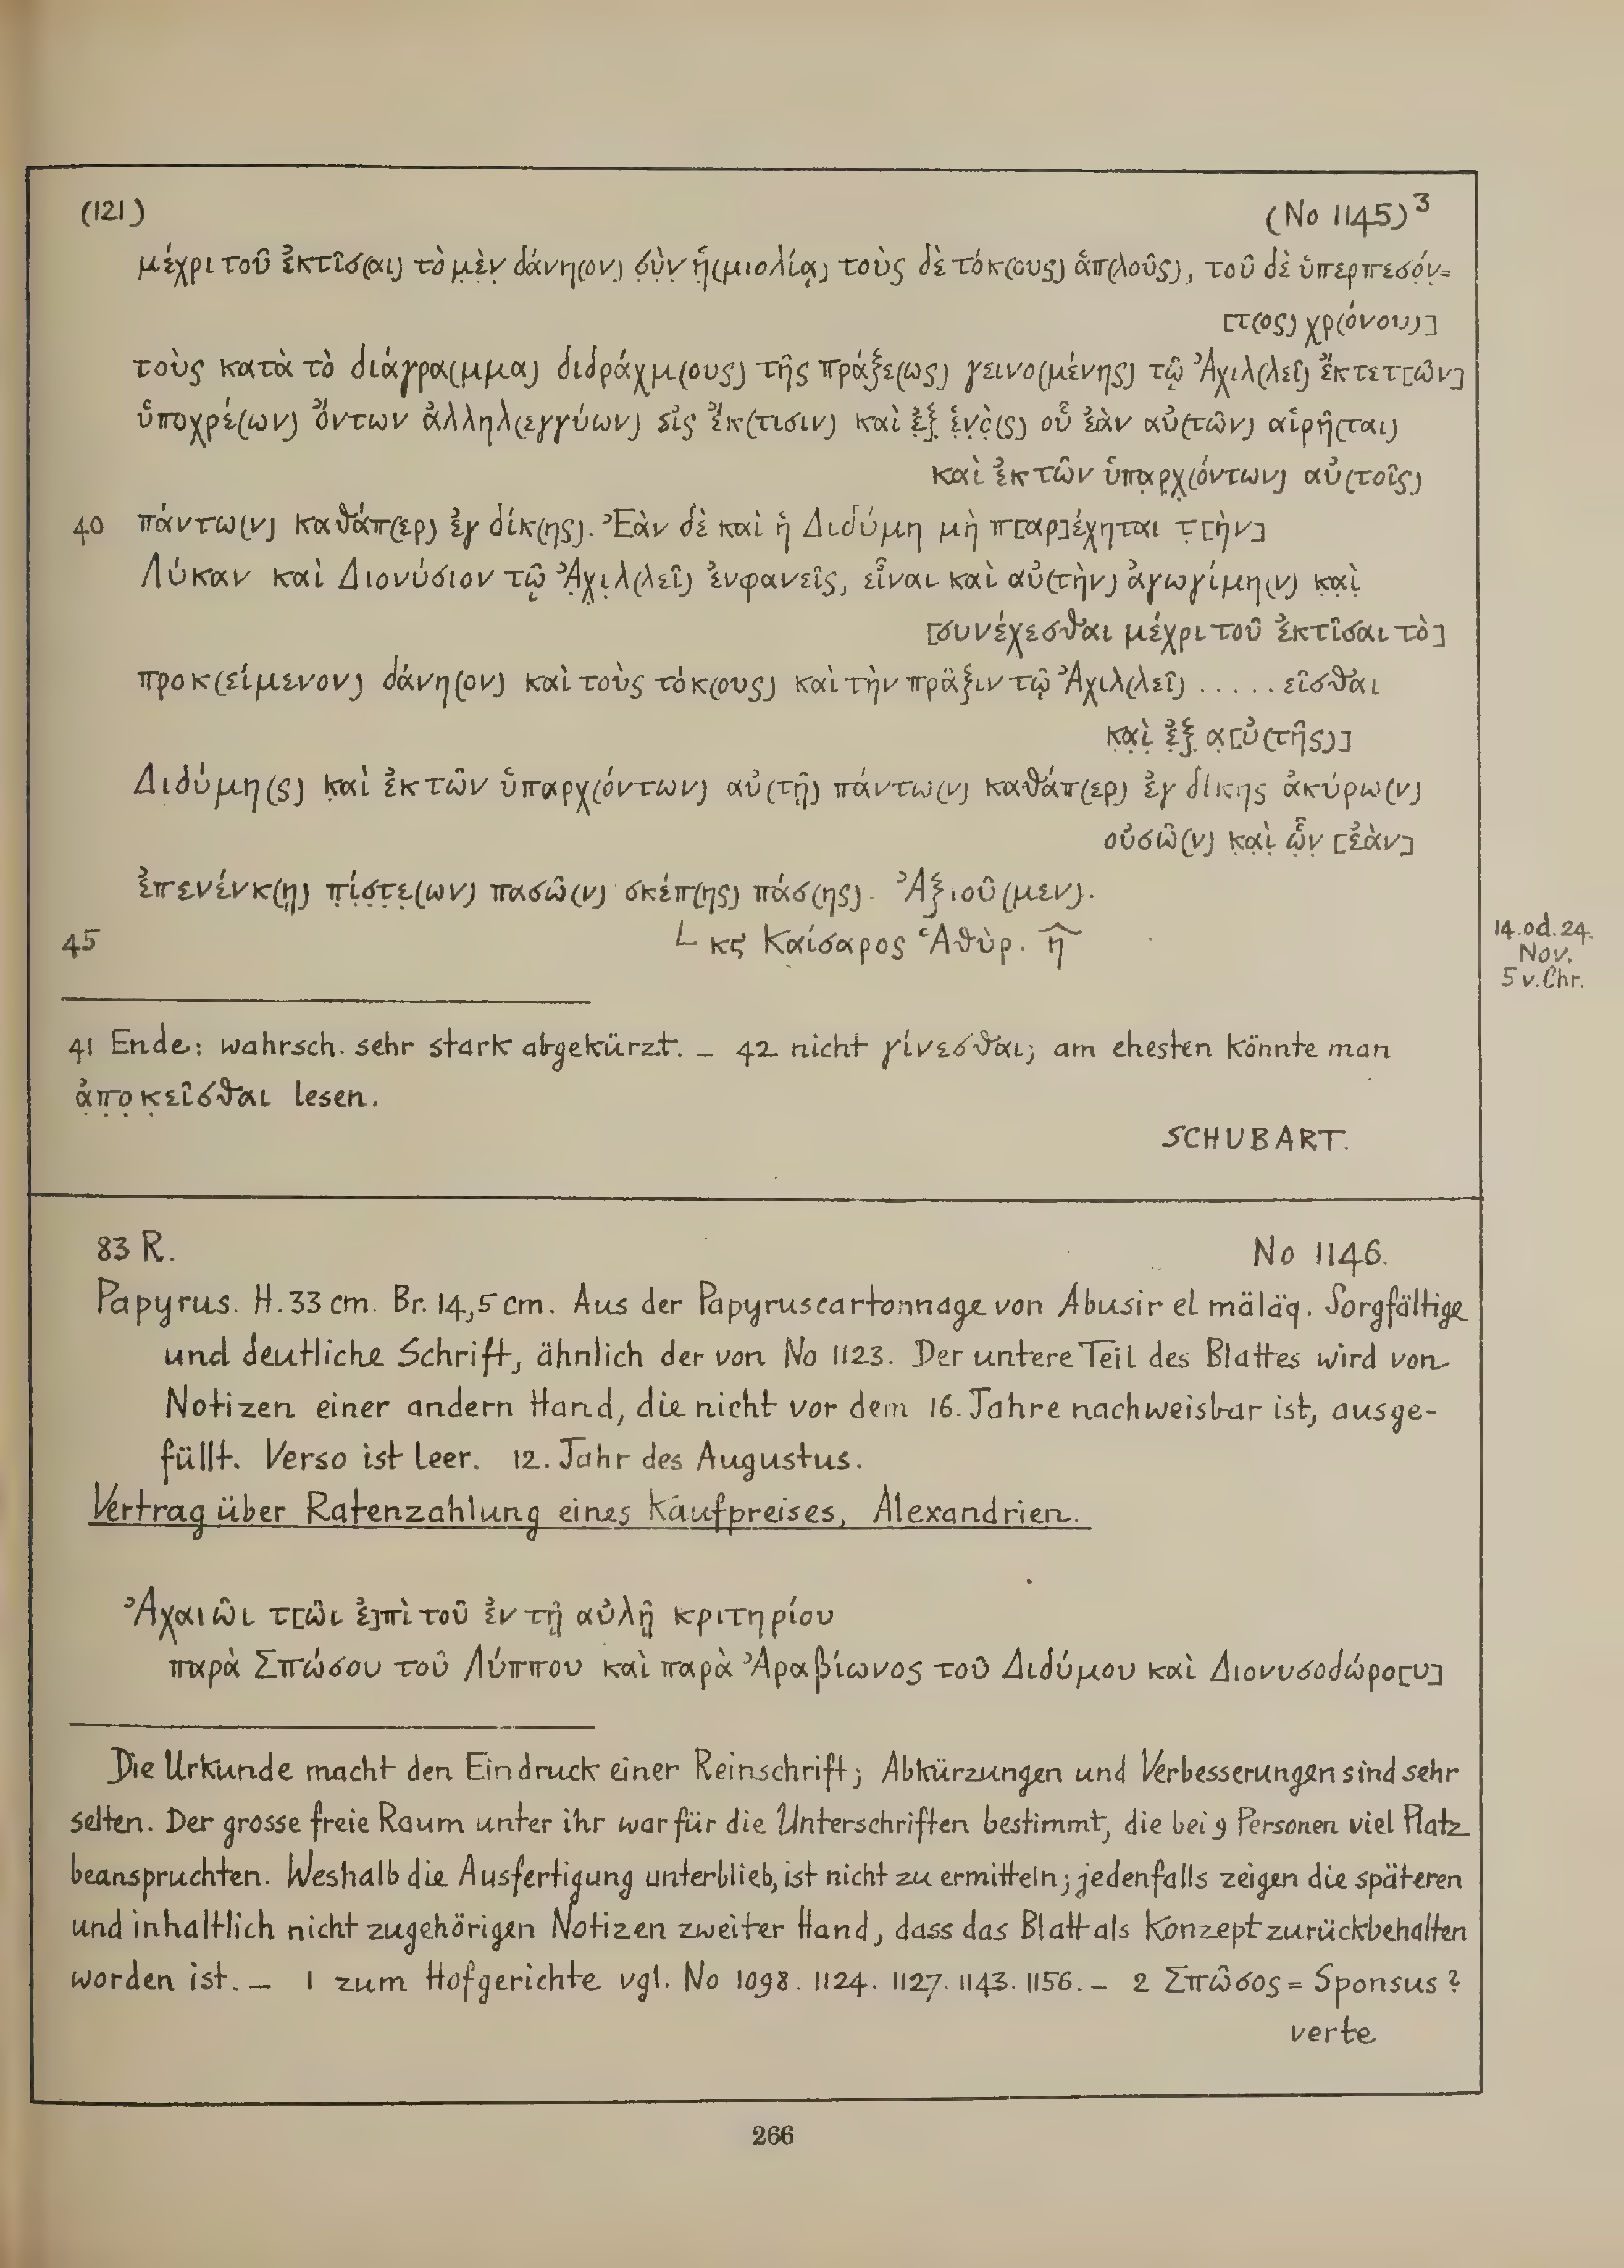 (121) (No 1145)³
μέχρι τοῦ ἐκτῖσ(αι) τὸ μ̣ὲ̣ν̣ δάνη(ον) σ̣ὺ̣ν̣ ἡ̣(μιολίᾳ) τοὺς δὲ τόκ(ους) ἁπ(λοῦς), τοῦ δὲ ὑπερπεσό̣ν̣=
[τ(ος) χρ(όνου)]
τοὺς κατὰ τὸ διάγρα(μμα) διδράχμ(ους) τῆς πράξε(ως) γεινο(μένης) τῷ Ἀχιλ(λεῖ) ἔκ τε τ[ῶν]
ὑποχρέ(ων) ὄντων ἀλληλ(εγγύων) εἰς ἔκ(τισιν) καὶ ἐ̣ξ̣ ἑ̣ν̣ὸ̣(ς) οὗ ἐὰν αὐ(τῶν) αἱρῆ(ται)
καὶ ἐκ τῶν ὑπα̣ρ̣χ̣(όντων) αὐ(τοῖς)
40 πάντω(ν) καθάπ(ερ) ἐγ δίκ(ης). Ἐὰν δὲ καὶ ἡ Διδύμη μὴ π[αρ]έχηται τ̣[ὴν]
Λύκαν καὶ Διονύσιον τῷ Ἀ̣χ̣ι̣λ(λεῖ) ἐνφανεῖς, εἶναι καὶ αὐ(τὴν) ἀγωγίμη(ν) κ̣α̣ὶ̣
[συνέχεσθαι μέχρι τοῦ ἐκτῖσαι τὸ]
προκ(είμενον) δάνη(ον) καὶ τοὺς τόκ(ους) καὶ τὴν πρᾶξιν τῷ Ἀχιλ(λεῖ) ..... εῖσθαι
κ̣α̣ὶ̣ ἐ̣ξ̣ α̣[ὐ(τῆς)]
Διδύμη(ς) κ̣αὶ ἐκ τῶν ὑπαρχ(όντων) αὐ(τῇ) πάντω(ν) καθάπ(ερ) ἐγ δίκης ἀκύρω(ν)
οὐσῶ(ν) κ̣α̣ὶ̣ ὧ̣ν̣ [ἐὰν]
ἐπενένκ(ῃ) π̣ί̣σ̣τ̣ε̣(ων) πασῶ(ν) σκέπ(ης) πάσ(ης). Ἀξιοῦ(μεν).
45 L κϛ Καίσαρος Ἁθὺρ. η̂
14. od. 24.
Nov.
5 v. Chr.
41 Ende: wahrsch. sehr stark abgekürzt. – 42 nicht γίνεσθαι; am ehesten könnte man
ἀ̣π̣ο̣κ̣εῖσθαι lesen.
SCHUBART.
83 R. No 1146.
Papyrus. H. 33 cm. Br. 14,5 cm. Aus der Papyruscartonnage von Abusir el mäläq. Sorgfältige
und deutliche Schrift, ähnlich der von No 1123. Der untere Teil des Blattes wird von
Notizen einer andern Hand, die nicht vor dem 16. Jahre nachweisbar ist, ausge-
füllt. Verso ist leer. 12. Jahr des Augustus.
Vertrag über Ratenzahlung eines Kaufpreises, Alexandrien.
Ἀχαιῶι τ[ῶι ἐ]πὶ τοῦ ἐν τῇ αὐλῇ κριτηρίου
παρὰ Σπώσου τοῦ Λύππου καὶ παρὰ Ἀραβίωνος τοῦ Διδύμου καὶ Διονυσοδώρο[υ]
Die Urkunde macht den Eindruck einer Reinschrift; Abkürzungen und Verbesserungen sind sehr
selten. Der grosse freie Raum unter ihr war für die Unterschriften bestimmt, die bei 9 Personen viel Platz
beanspruchten. Weshalb die Ausfertigung unterblieb, ist nicht zu ermitteln; jedenfalls zeigen die späteren
und inhaltlich nicht zugehörigen Notizen zweiter Hand, dass das Blatt als Konzept zurückbehalten
worden ist. – 1 zum Hofgerichte vgl. No 1098. 1124. 1127. 1143. 1156. – 2 Σπῶσος = Sponsus?
verte
266